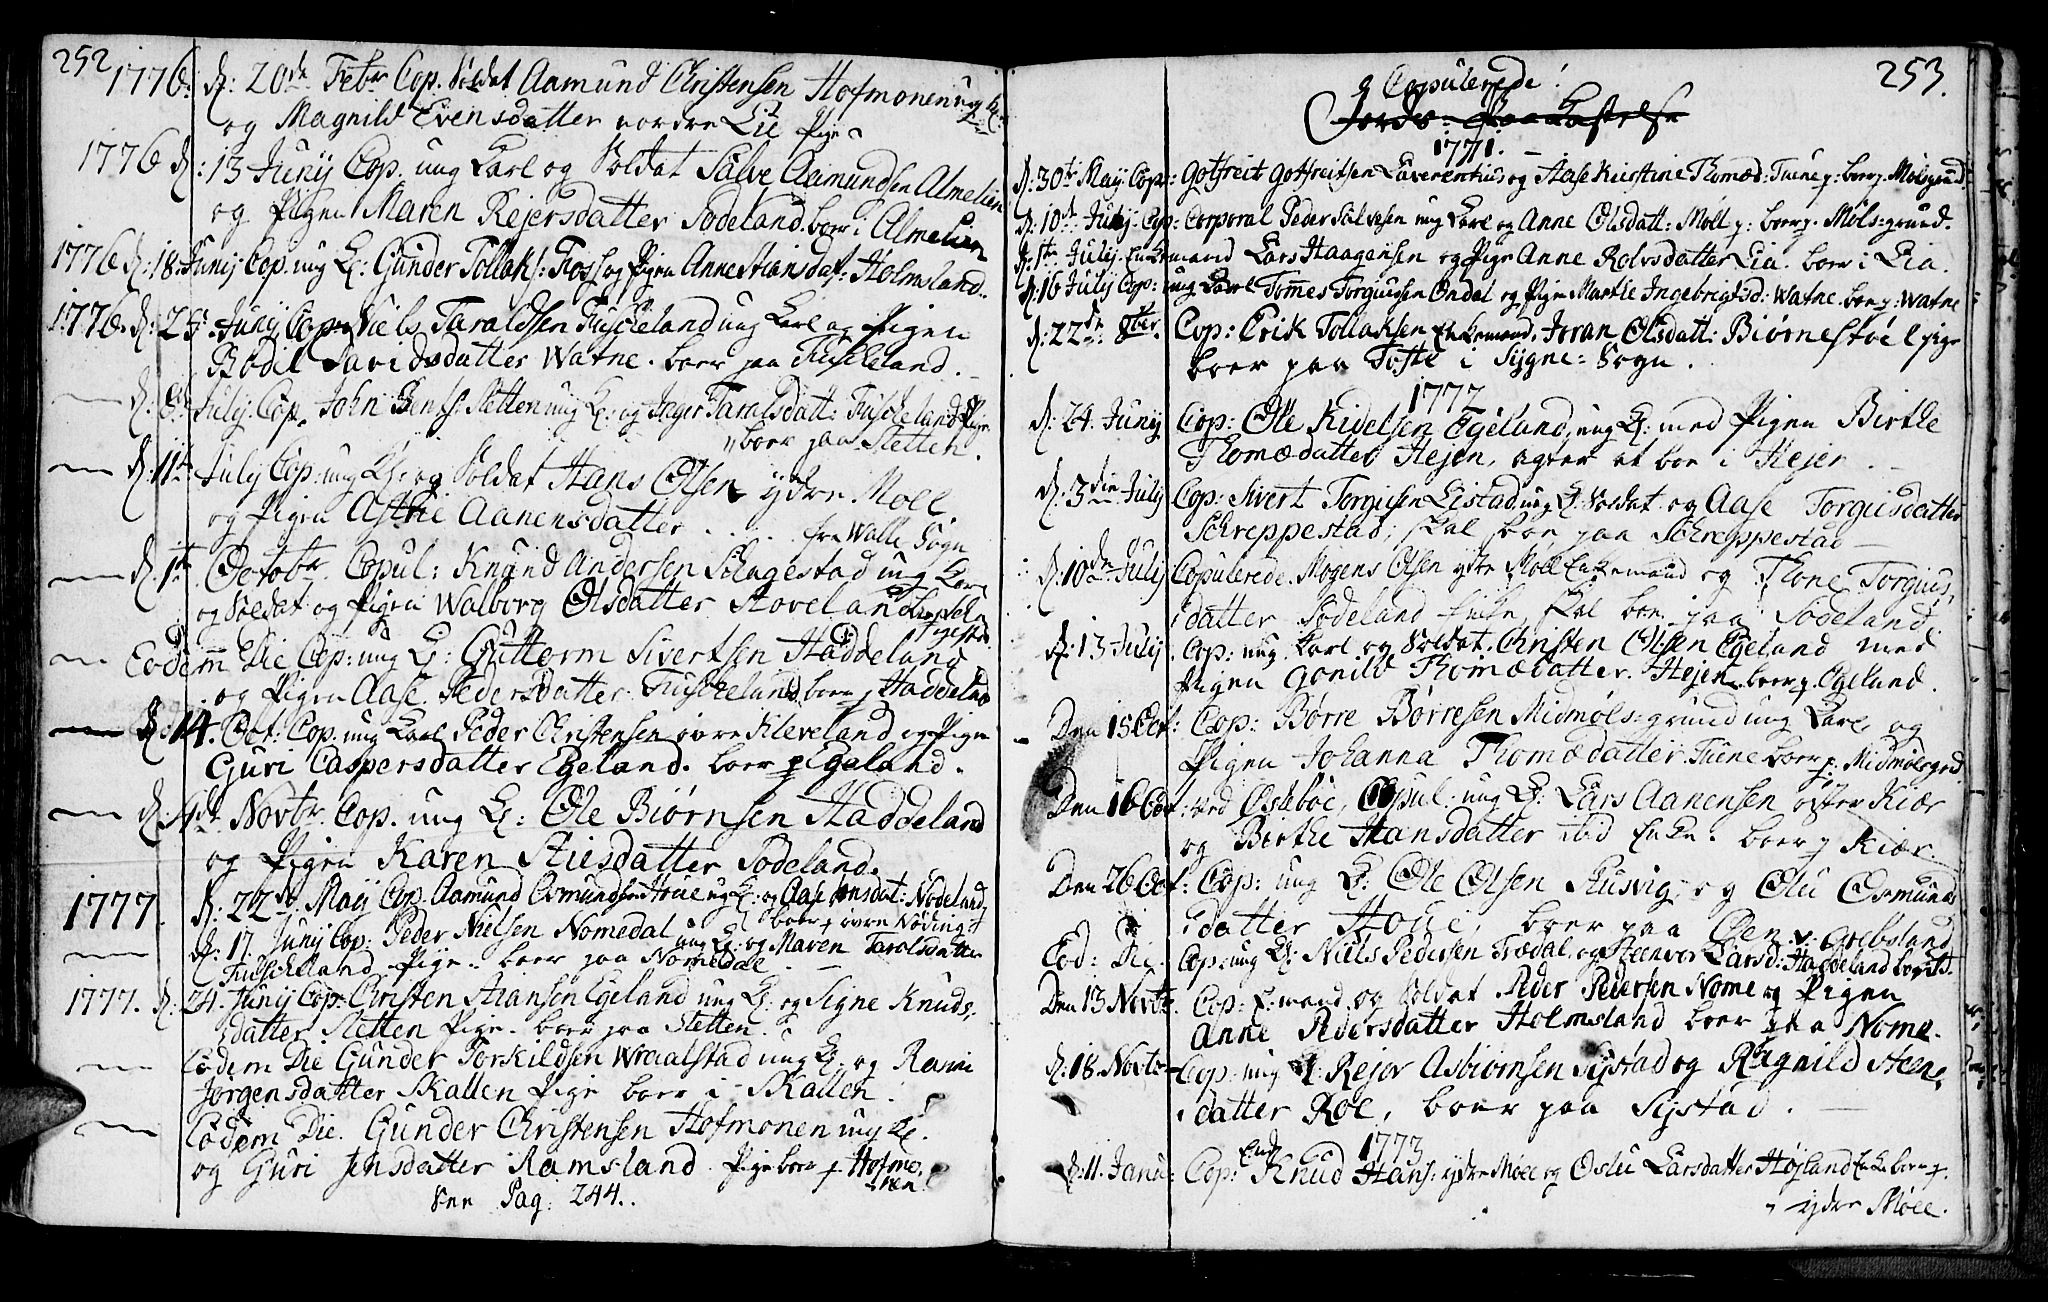 252
1776. d: 20de Febr Cop. Soldat Aamund Christensen Hofmonen ung K:
og Magnild Evensdatter nordre Lie Pige
1776 d: 13 Junij Cop. ung Karl og Soldat Salve Aamundsen Almelien
og Pigen Maren Rejersdatter Sodeland. boer i Almelien
1776 d: 18 Junij Cop. ung K: Gunder Tollaks: Foss og Pigen Anne Stiansdat: Holmsland.
1776. d: 25 Junij Cop. Niels Taraldsen Fuskeland ung Karl og Pigen
Bodil Davidsdatter Watne. boer paa Fuskeland.
d: July Cop. John Jens: Stetten ung K: og Inger Taralsdatt: Fuskeland Pige
boer paa Stetten.
d: 11te July Cop: ung K: og Soldat Hans Olsen ydre Moll
og Pigen Astrie Aanensdatter . . . fra Walle Sogn
d: 1te Octobr. Copul: Knund Andersen Slagestad ung Karl
og Soldat og Pigen Walborg Olsdatter Stoveland
Eodem Die Cop: ung K: Guttorm Sivertsen Haddeland
og Pigen Aase Pedersdatter Fuskeland boer p Haddeland
d: 14. Oct: Cop. ung Karl Peder Christensen øvre Kleveland og Pige
Guri Caspersdatter Egeland. boer p Egeland.
d: 4de Novbr. Cop. ung K: Ole Biørnsen Haddeland
og Pigen Karen Stiesdatter Sodeland.
1777. d: 22de Maij Cop. Aamund Osmundsen Houe ung K: og Aase Jonsdat: Nodeland
boer p øvre Nøding
d: 17. Junij Cop: Peder Nielsen Nomedal ung K: og Maren Taralsdatter
Fuskeland Pige. boer paa Nomedal
1777. d: 24. Junij Cop: Christen Stiansen Egeland ung K: og Signe Knuds,
datter Stetten Pige. boer paa Stetten.
Eodem Die Gunder Torkildsen Wraalstad ung K. og Rami
Jørgensdatter Skallen Pige boer i Skallen.
Eodem Die. Gunder Christensen Hofmonen ung K:
og Guri Jensdatter Ramsland. Pige boer p Hofmo,
nen.
See Pag: 244.
253.
Copulerede.
1771.
d: 30te Maij Cop: Gotfreit Gotfreitsen Laverentius og Aase Kirstine Thomæd: Tuene p: boer p. Mølsgrund
d: 10de Julij Cop: Corporal Peder Salvesen ung Karl og Anne Olsdatt: Møll p: boer p. Møls:grund.
d: 1te July Enkemand Lars Haagensen og Pige Anne Rolvsdatter Lia. boer i Lia.
d: 16 July Cop: ung Karl Tommes Torgiusen Ondal og Pige Marthe Ingebrigtsd: Watne. boer p: Watne
d: 22de 8ber. Cop: Erik Tollaksen Enkemand, Joran Olsdatt: Biørnestøl pige
boer paa Tofte i Sygne: Sogn.
1772
d: 24 Junij Cop: Ole Kidelsen Egeland, ung K: med Pigen Birthe
Thomædatter Hejen, agter at boe i Hejen.
d: 3die Julij Cop: Sivert Torgiusen Listad, ung K: Soldat og Aase Torgiusdatter
Schreppestad; skal boe paa Schreppestad
d: 10de Julij Copulerede. Mogens Olsen ydre Møll Enkemand og Thone Torgius,
datter Sodeland Enke, skal boe paa Sodeland
d: 13 Julij Cop: ung Karl og Soldat. Christen Olsen Egeland med
Pigen Gonild Thomædatter. Hejen. boer p. Egeland.
Den 15 Oct: Cop: Børre Børresen Midmøls:grund ung Karl og
Pigen Johanna Thomædatter. Tuene boer p. Midmølsgrd
Den 16 Oct: ved Oskeboe, Copul: ung K: Lars Aanensen øster Kiær
og Birthe Hansdatter ibid Enke. boer p Kiær.
Den 26 Oct: Cop: ung K: Ole Olsen Husvig, og Olu Osmunds
datter Houe, boer paa Øen v. Grebsland
Eod: Die. Cop: ung K: Niels Pedersen Trædal, og Steenvor Larsd: Haddeland boer ibd.
Den 13 Novbr. Cop: E.mand og Soldat Peder Pedersen Nome og Pigen
Anne Pedersdatter Holmsland boer paa Nome.
d: 18. Novbr Cop: ung K: Rejor Asbiørnsen Systad og Ragnild Steen,
datter Roe, boer paa Systad.
1773
d: 11. Janu: Cop: Enk Knud Hans: ydre Møll og Oslu Larsdatter Højland Enke boer p.
ydre Møll.